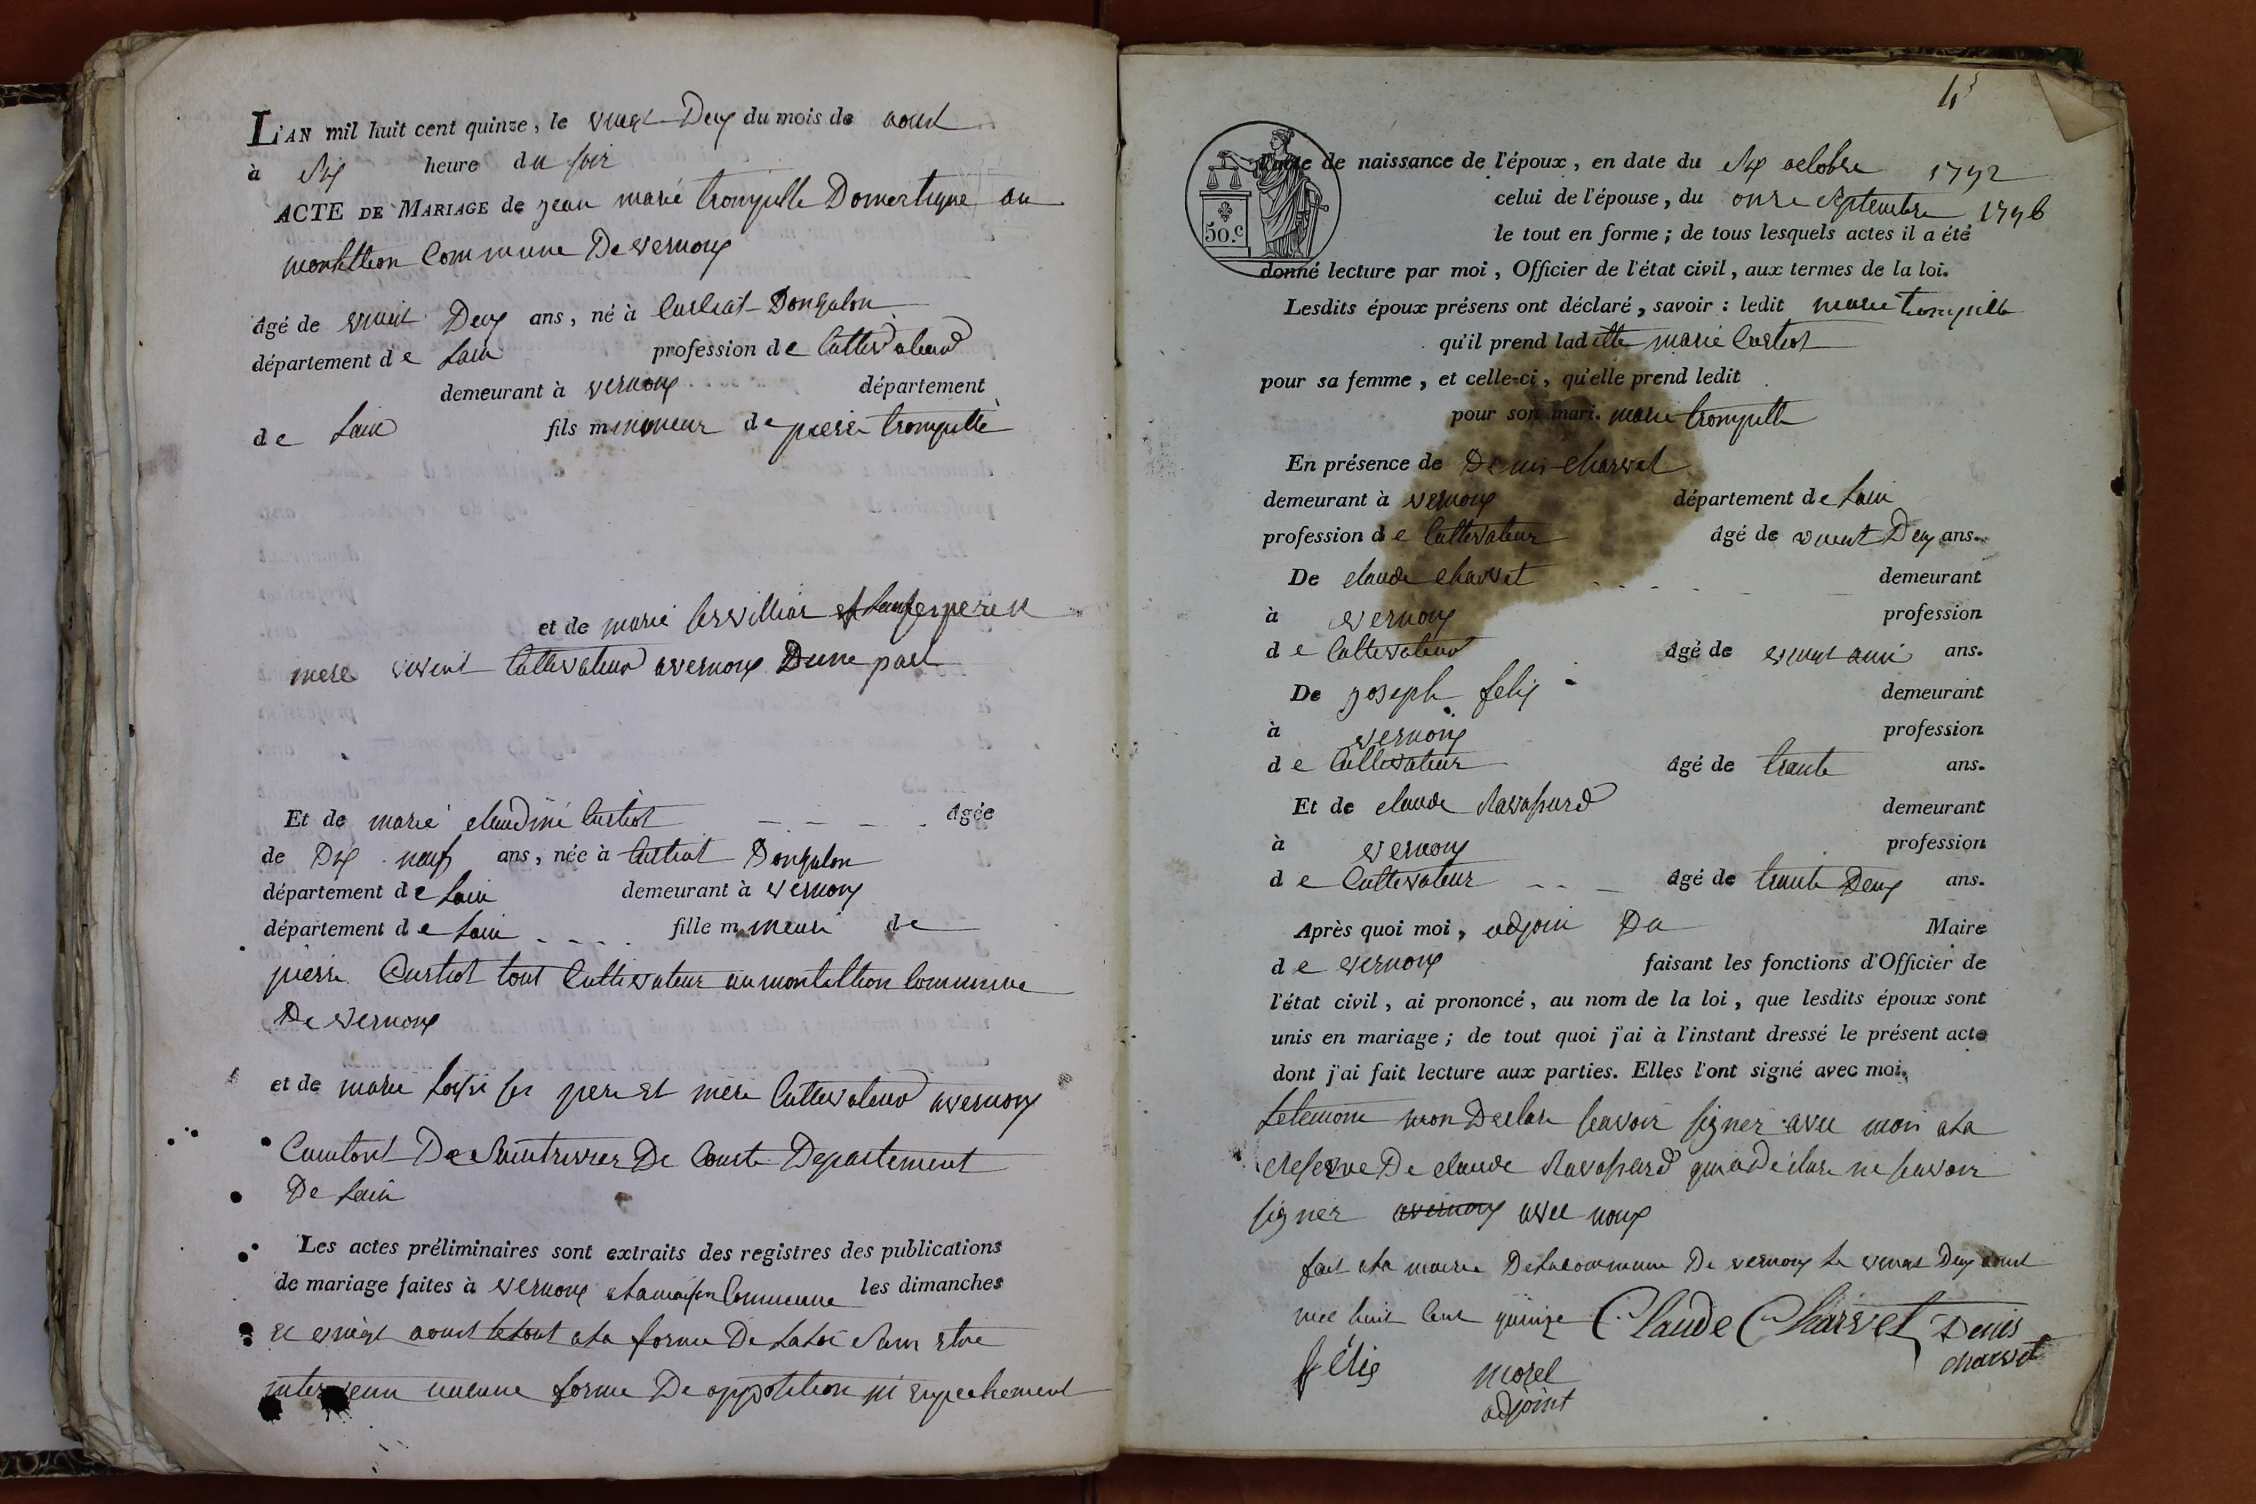 L'AN mil huit cent quinze, le vingt Deux du mois de aoust
à Six heure du soir
ACTE DE MARIAGE de jean marie trompille Domestique au
montellion Commune De vernoux
âgé de vingt Deux ans, né à Curciat Dongalon
département de Lain profession de Cultivateur
demeurant à vernoux département
de Lain fils mineur de pierre trompille
et de marie servilliat père et
mere vivent Cultivateur a vernoux Dune part
Et de marie claudine Curtiot âgée
de Dix neuf ans, née à Curciat Dongalon
département de Lain demeurant à vernoux
département de Lain fille mineure de
pierre Curtiot tout Cultivateur au montellion Commune
De vernoux
et de marie ses pere et mere Cultivateur a vernoux
Canton De Saintrivier De Courte Departement
De Lain
Les actes préliminaires sont extraits des registres des publications
de mariage faites à vernoux a la maison Commune les dimanches
et vingt aoust le tout a la forme De la Loi Sans etre
intervenu aucune forme De oppotition ni enpechement
4
L'acte de naissance de l'époux, en date du Six octobre 1792
celui de l'épouse, du onze Septembre 1796
le tout en forme ; de tous lesquels actes il a été
50.c
donné lecture par moi, Officier de l'état civil, aux termes de la loi.
Lesdits époux présens ont déclaré, savoir : ledit marie trompille
qu'il prend laditte marie Curtiot
pour sa femme, et celle-ci, qu'elle prend ledit
pour son mari. marie trompille
En présence de Denis charvet
demeurant à vernoux département de Lain
profession de Cultivateur âgé de vingt Deux ans.
De claude charvet demeurant
à vernoux profession
de Cultivateur âgé de vingt ans.
De joseph felix demeurant
à vernoux profession
de Cultivateur âgé de trante ans.
Et de claude Ravassard demeurant
à vernoux profession
de Cultivateur âgé de trante Deux ans.
Après quoi moi, adjoin Du Maire
de vernoux faisant les fonctions d'Officier de
l'état civil, ai prononcé, au nom de la loi, que lesdits époux sont
unis en mariage ; de tout quoi j'ai à l'instant dressé le présent acte
dont j'ai fait lecture aux parties. Elles l'ont signé avec moi.
Letemoin mon Declare seavoir signer avec moi a la
Reserve De claude Ravassard qui a Déclare ne seavoir
signer avernoux avec noux
fait a la mairie De la commune De vernoux Le vingt Deux aoust
mil huit Cent quinze Claude Charvet Denis
charvet
félix morel
adjoint